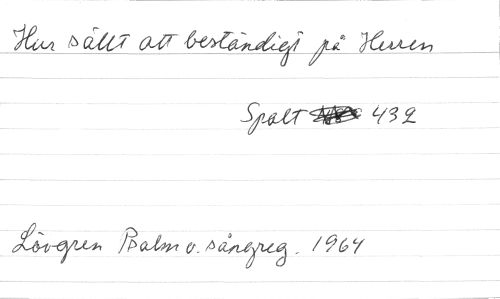 Hur sällt att beständigt på Herren
Spalt 432
Lövgren Psalm o. sångreg. 1964